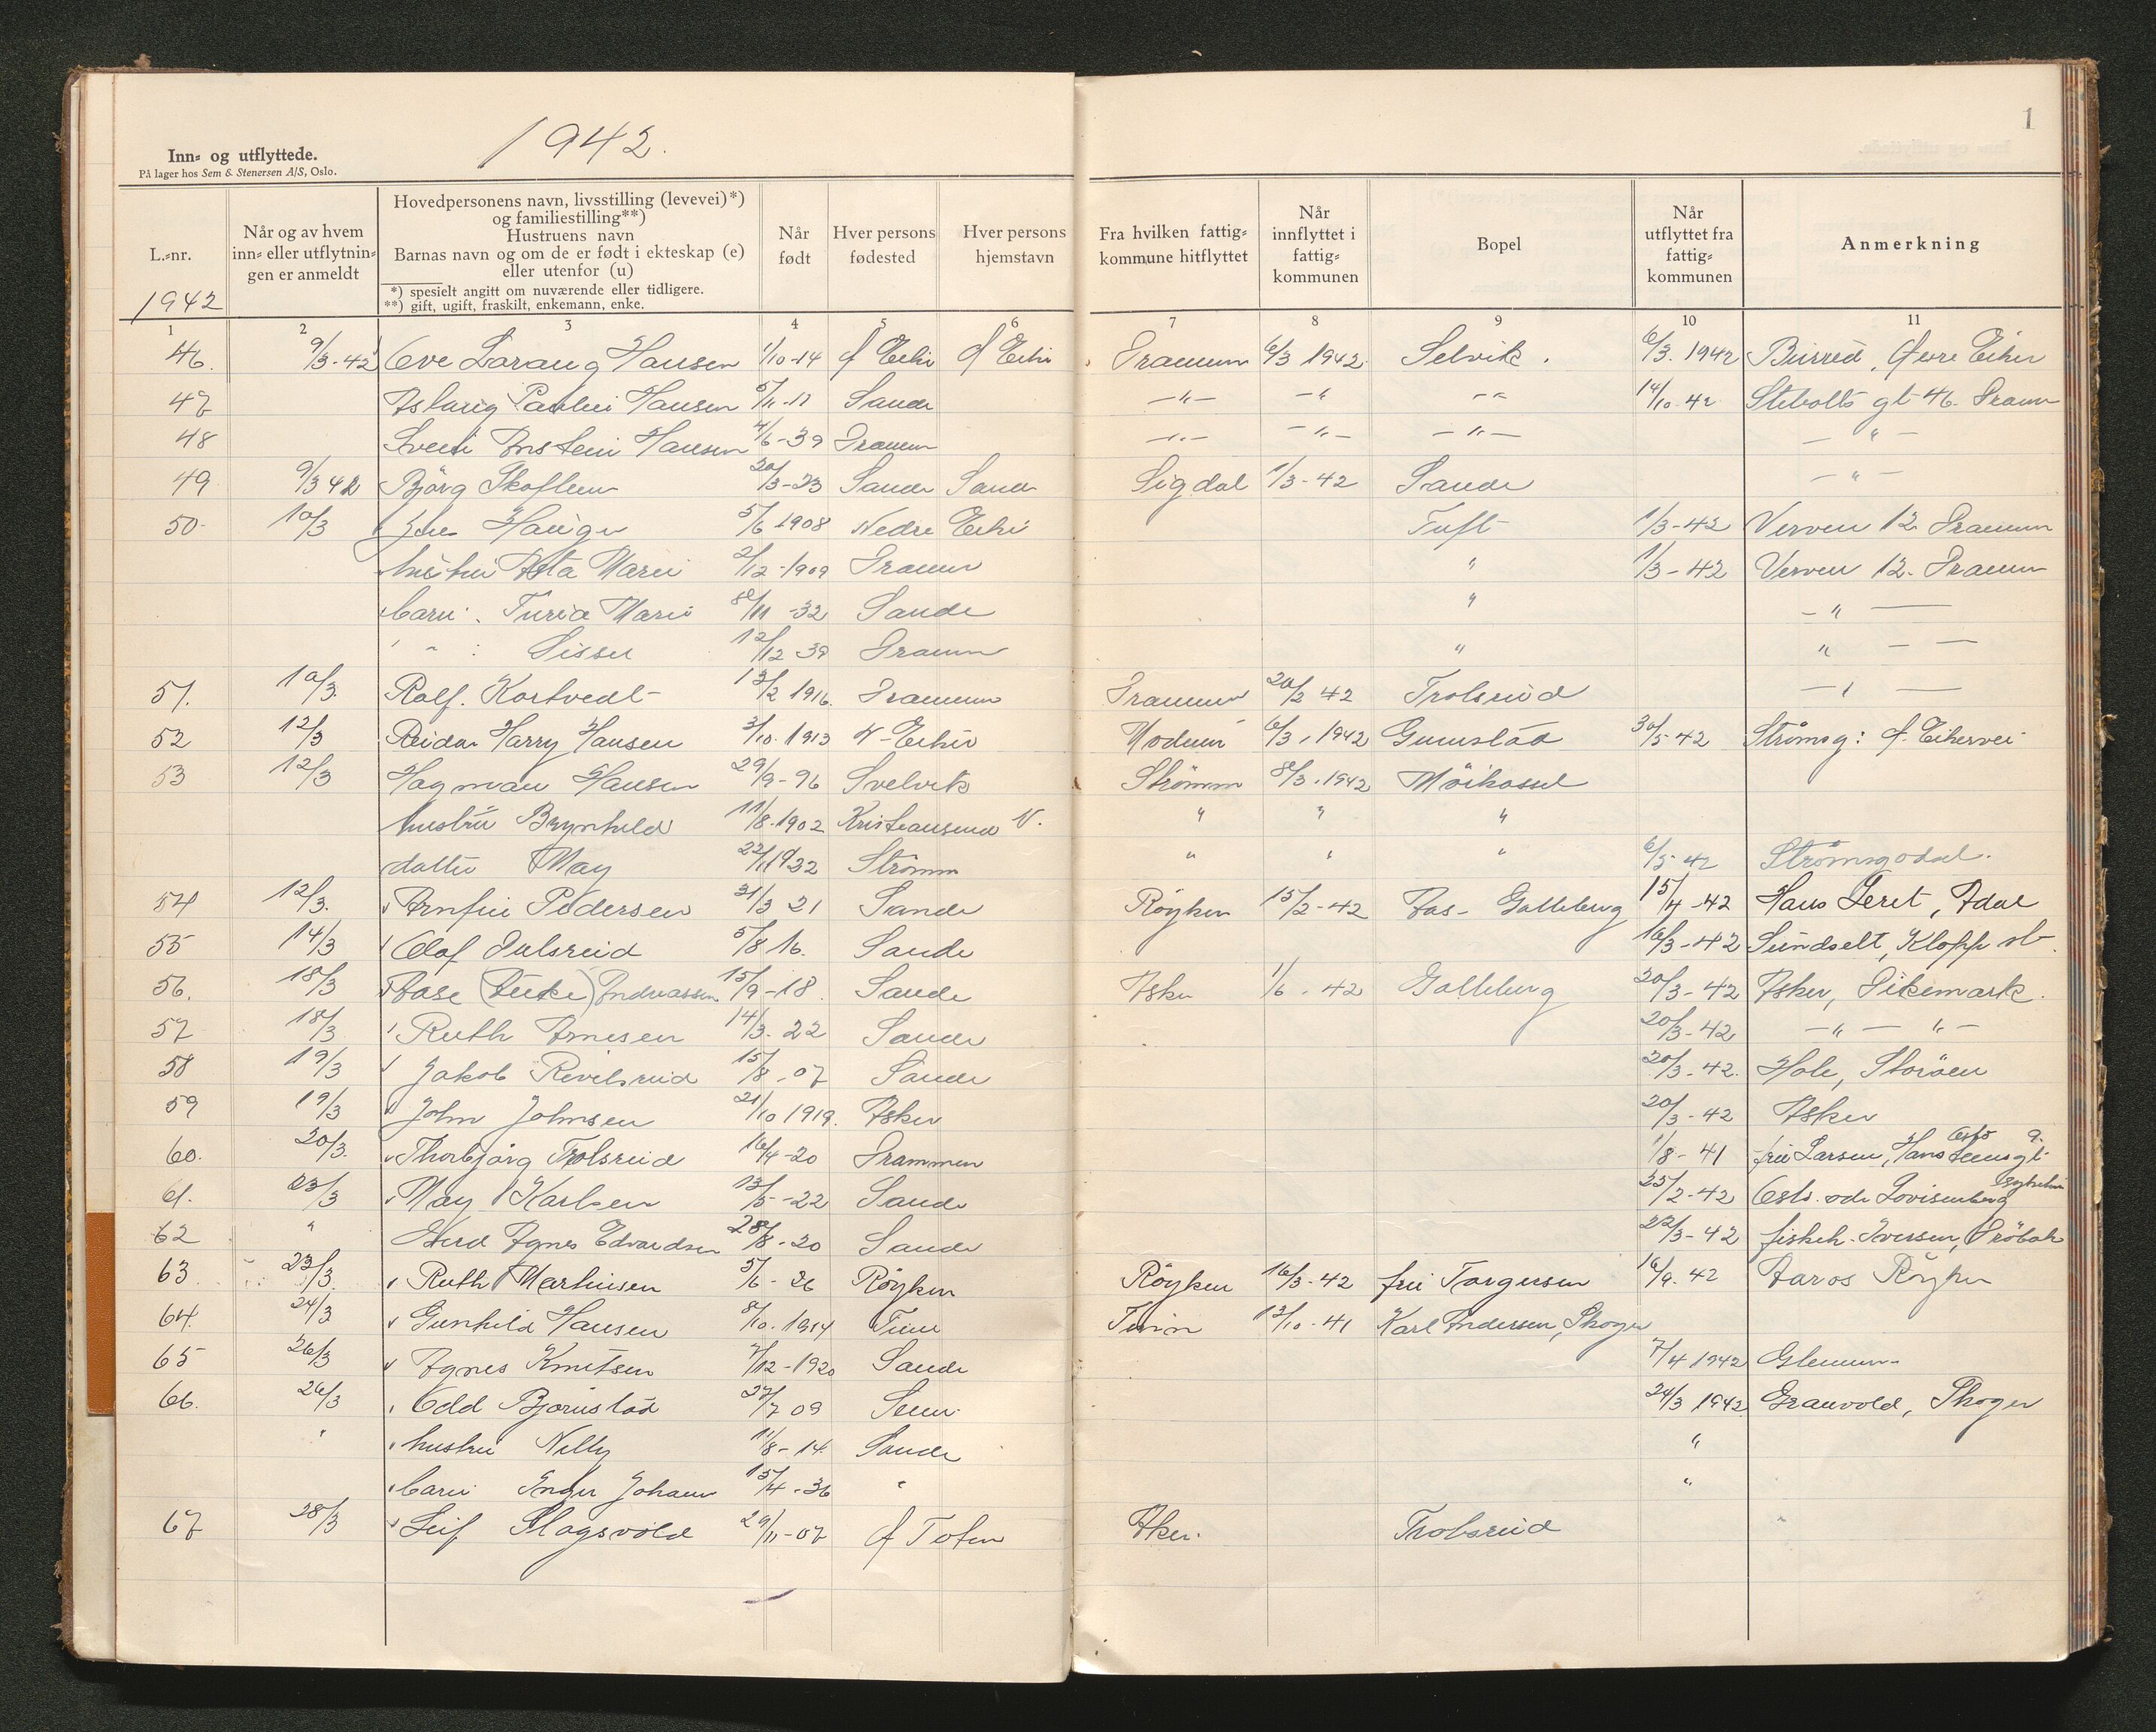 1942.
1
Inn- og utflyttede.
På lager hos Sem & Stenersen A/S, Oslo.
L.-nr.
1942
Når og av hvem
inn- eller utflytnin-
gen er anmeldt
Hovedpersonens navn, livsstilling (levevei)*)
og familiestilling**)
Hustruens navn
Barnas navn og om de er født i ekteskap (e)
eller utenfor (u)
*) spesielt angitt om nuværende eller tidligere.
**) gift, ugift, fraskilt, enkemann, enke.
Når
født
Hver persons
fødested
Hver persons
hjemstavn
Fra hvilken fattig-
kommune hitflyttet
Når
innflyttet i
fattig-
kommunen
Bopel
Når
utflyttet fra
fattig-
kommunen
Anmerkning
1 2 3 4 5 6 7 8 9 10 11
46. 9/3-42 Hansen 1/10-14 6/3 1942 Selvik. 6/3. 1942
47 Hansen 5/11-17 Sande -"- -" -" 14/10-42 gt 46. Dramm
48 Hansen 4/6-39 Dramm -"- -"- -"- -"-
49 9/3 42 Björg 20/3-23 Sande Sande Sigdal 1/3-42 Sande -"-
50. 10/3 5/6 1908 Nedre Eiker Tuft 1/3-42 Verven 12 Drammen
hustru Asta Marie 2/12-1909 Dramm " 1/3-42 Verven 12. Dramm
barn: Turid Marie 8/11-32 Sande " -" —
" : 12/12 39 Dramm " " - -
51. 10/3. Rolf. Kortvedt 13/2 1916. Drammen Drammen 20/2 42 Trolsrud -"-
52 12/3 Reidar Harry Hansen 3/10. 1913 N-Eiker Modum 6/3. 1942 30/5-42 Strømsg:
53 12/3 Hagman Hansen 29/9-96 Svelvik Strømm 8/3. 1942
hustru Brynhild 11/8-1902 Kristiansund N. " " "
datter May 22/11 1932 Strömm " " " 6/5 42 Strömsgodset.
54 12/3. Arnfin Pedersen 31/3 21 Sande Röyken 15/2-42 Galleberg 15/4-42 Hans
55 14/3 Olaf Dulsrud 5/8 16. Sande 16/3-42 Klopp st.
56. 18/3 Aase Andreassen 15/9-18. Sande Asker 1/6-42 Galleberg 20/3-42 Asker, Dikemark.
57 18/3 Ruth Arnesen 14/3-22 Sande 20/3-42 -"- "-
58 19/3 Jakob Revilsrud 15/8-07 Sande 20/3-42. Hole, Storöen
59 19/3 John Johnsen 21/10 1919. Asker 20/3-42 Asker
60. 20/3. Thorbjörg Trolsrud 16/4-20 Drammen 1/8-41 fru Larsen, Oslo
61. 23/3 May Karlsen 13/5-22 Sande 25/2-42 Oslo. Lovisenberg sykehus
62 " Agnes Edvardsen 28/8-20 Sande 22/3-42 fiskeh. Iversen, Dröbak
63. 23/3. Ruth Martinsen 5/6-26 Röyken Röyken 16/3-42 fru Torgersen 16/9-42 Aaros Röyken
64. 24/3 Gunhild Hansen 8/10. 1914 13/10-41 Karl Andersen, Skoger
65 26/3 Agnes Knutsen 7/12-1920 Sande 7/4 1942
66. 26/3 Odd Björnstad 27/7 09 Sem 24/3 1942. Granvold, Skoger
" hustru Nelly 11/8-14. Sande "
barn Inger Johanne 15/4-36 " "
67 28/3 Leif 29/11-07 Ø Toten Aker. Trolsrud